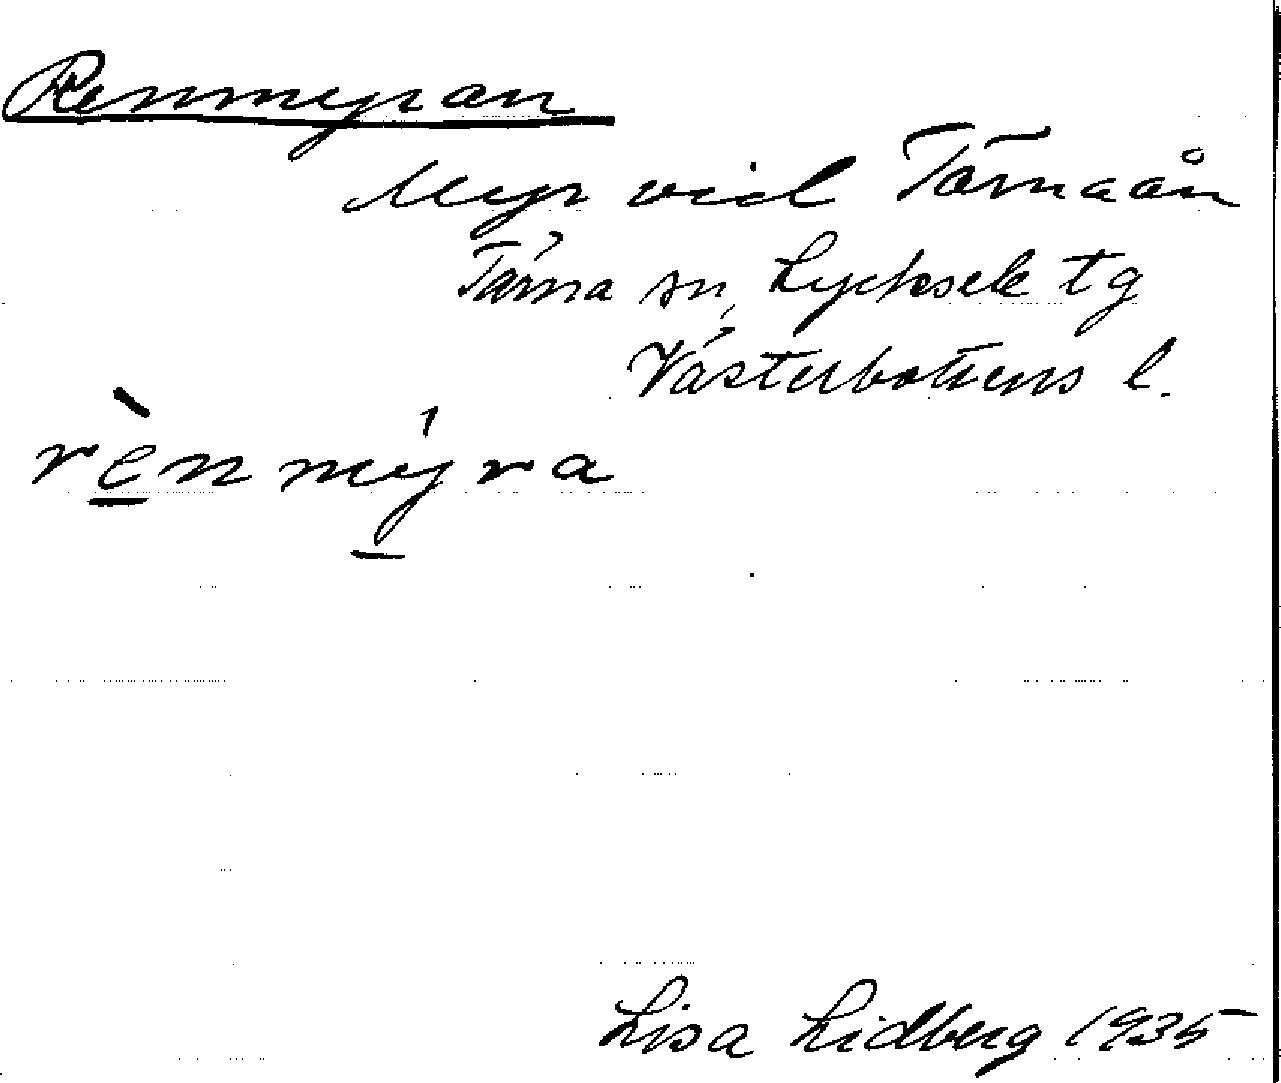 Renmyran
Myr vid Tärnaån
Tärna sn, Lycksele tg
Västerbottens l.
rènmýra
Lisa Lidberg 1935